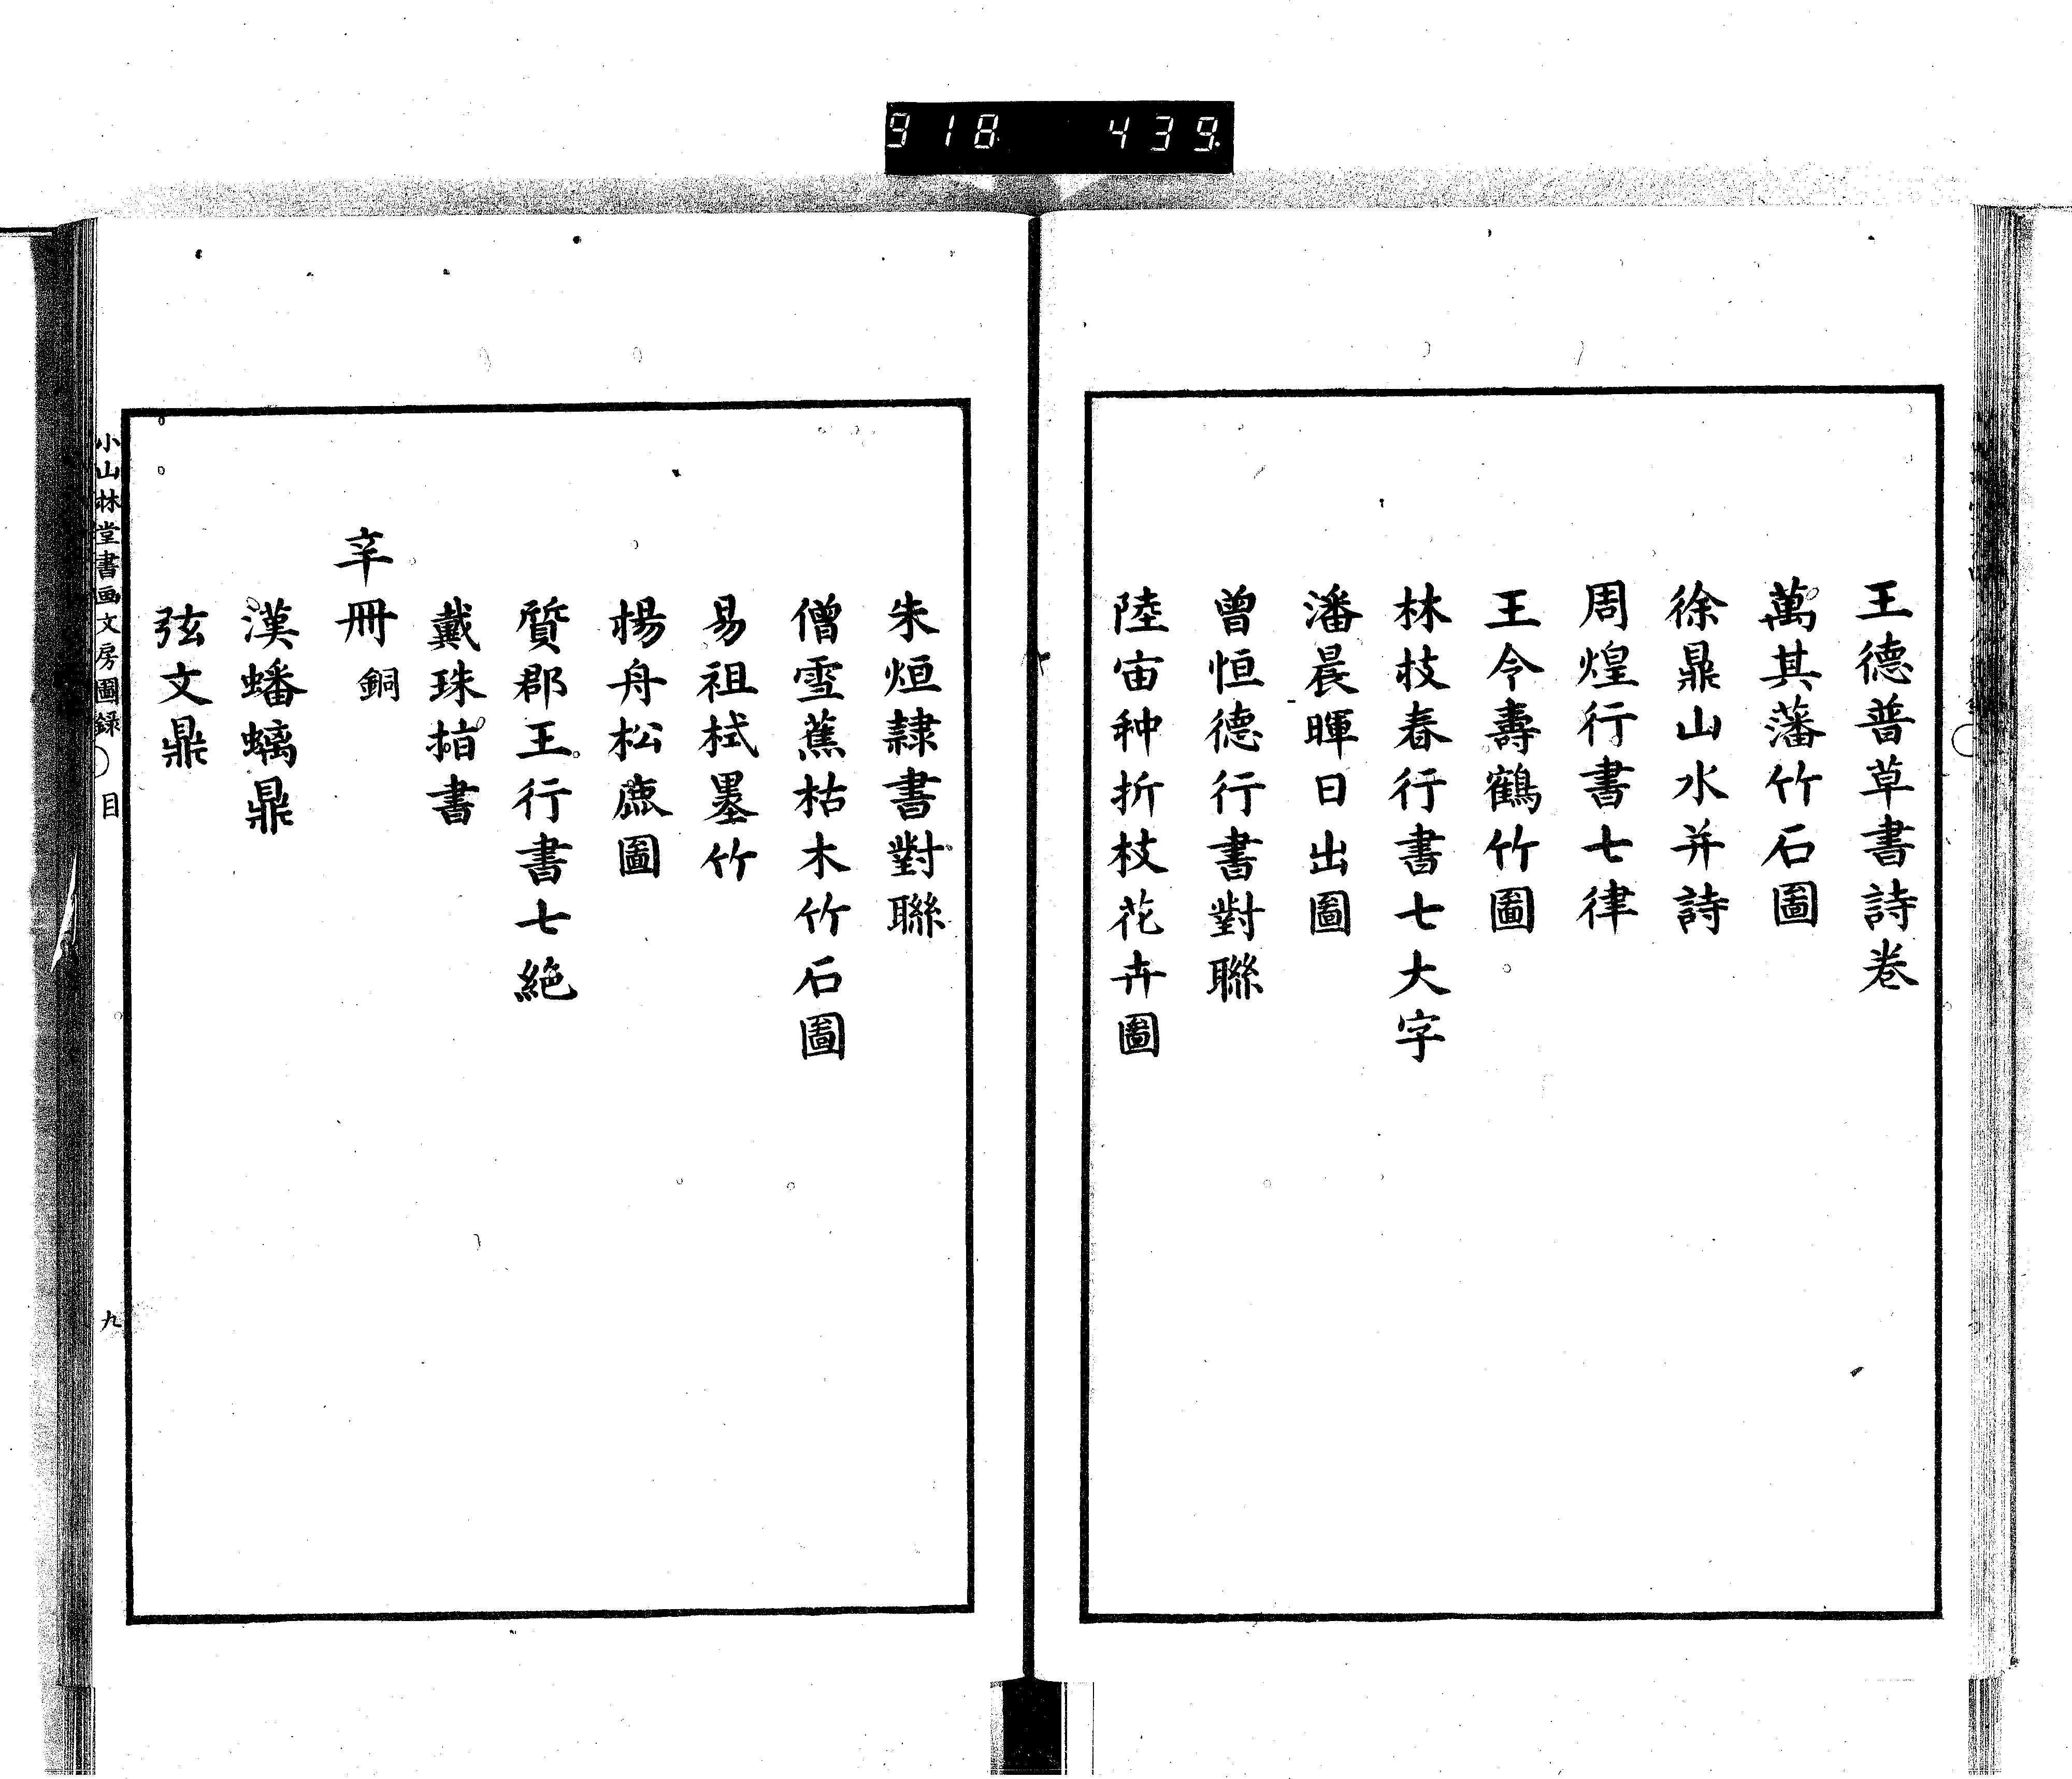 918 439
王德普草書詩卷
萬其藩竹石圖
徐鼎山水并詩
周煌行書七律
王令壽鶴竹圖
林枝春行書七大字
潘晨暉日出圖
曾恒德行書對聯
陸宙种折枝花卉圖
朱烜隷書對聯
僧雪蕉枯木竹石圖
易祖栻墨竹
楊舟松鹿圖
質郡王行書七絕
戴珠指書
辛冊 銅
漢蟠螭鼎
弦文鼎
小山林堂書画文房圖録 目 九